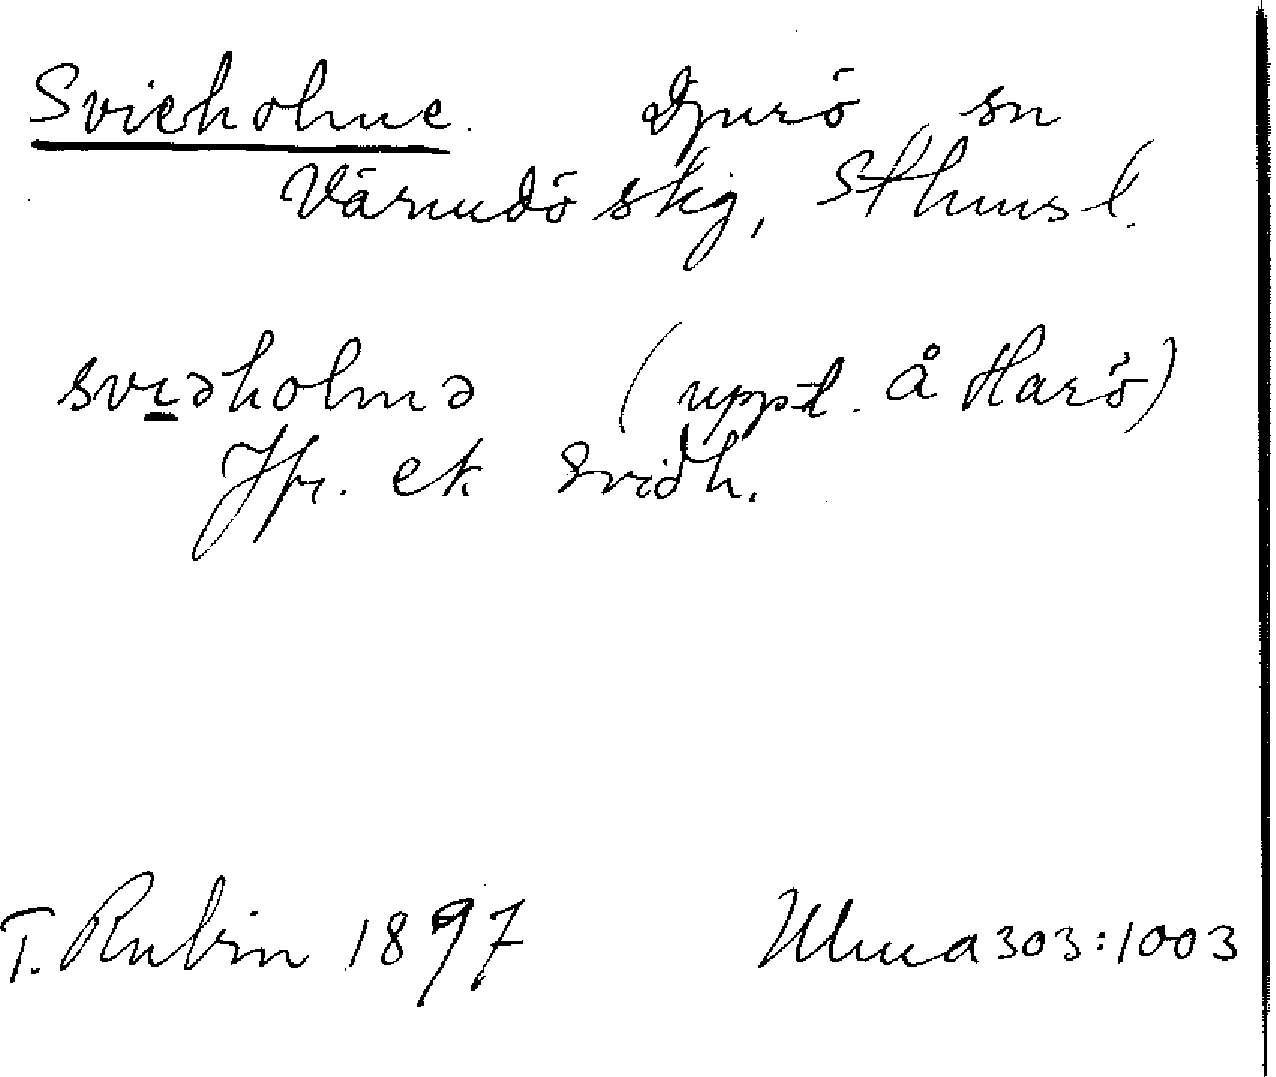 Svieholme. Djurö sn
Värmdö skg, Sthms l.
svıəholmə (uppt. å Harö)
Jfr. ek Svidh.
T. Rubin 1897 Ulma 303:1003